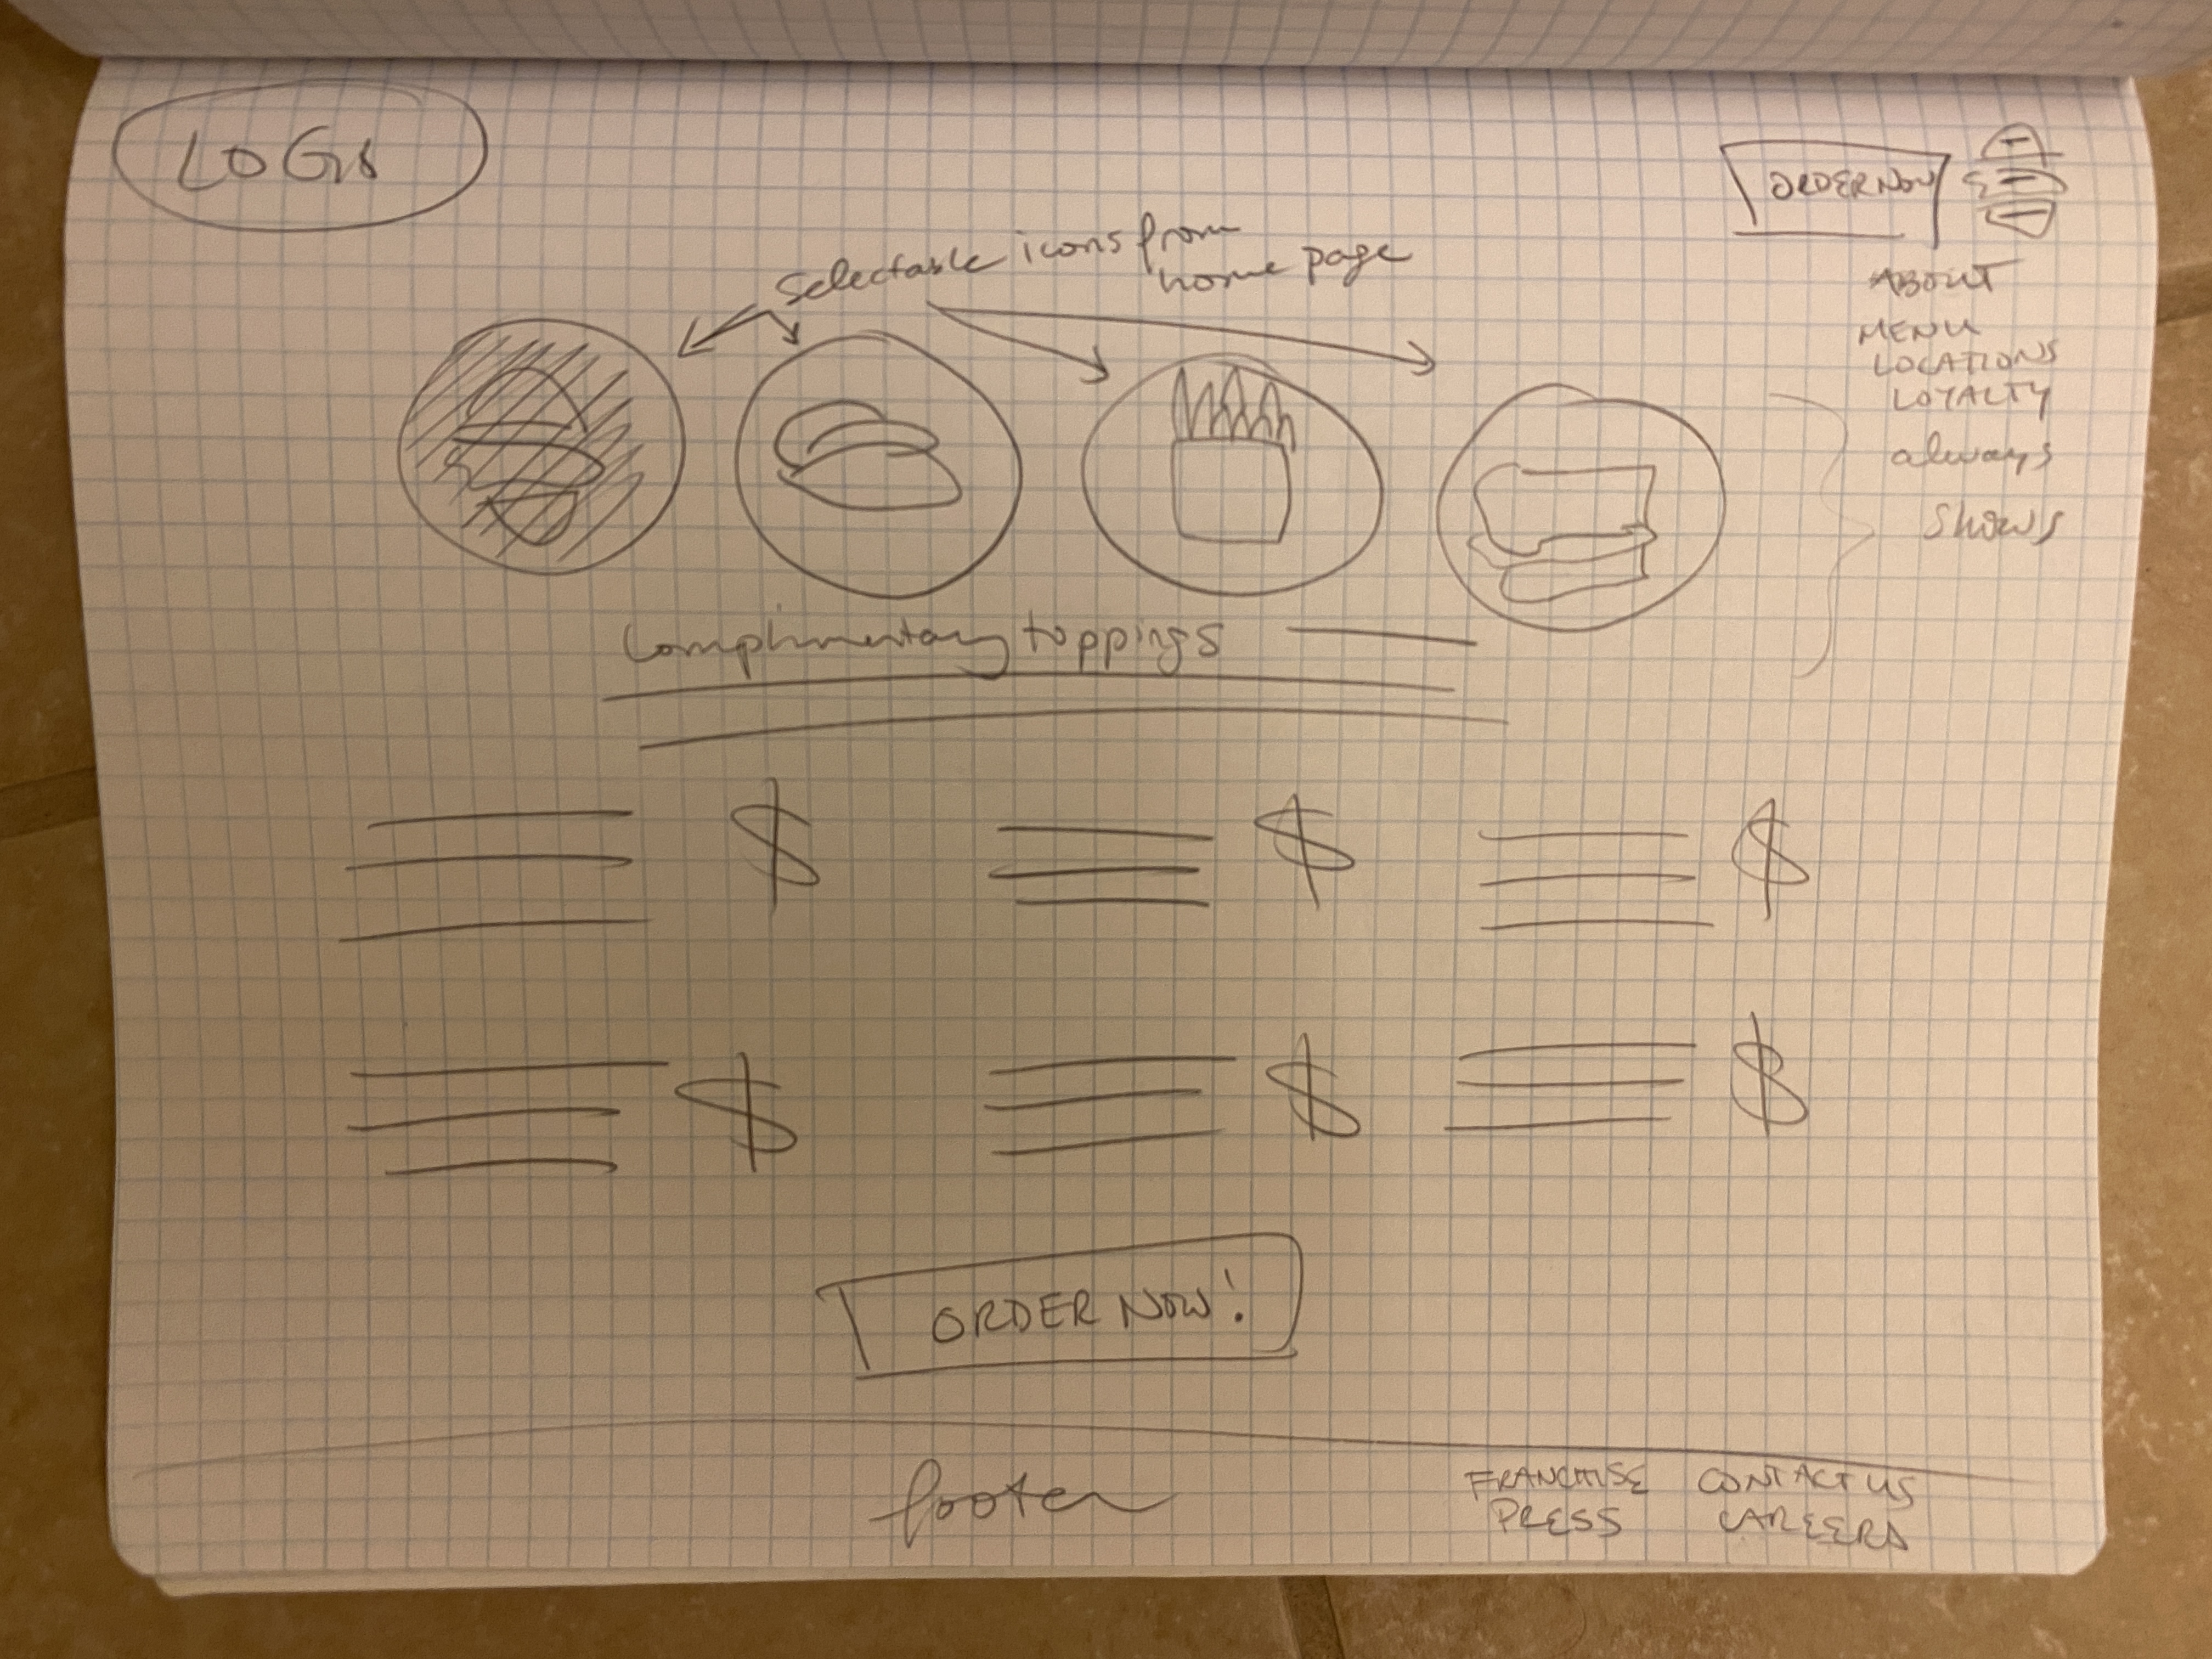 LOGO
ORDER NOW
ABOUT
MENU
LOCATIONS
LOYALTY
always
shows
selectable icons from
home page
complimentary toppings
$ $ $
$ $ $
ORDER NOW!
footer
FRANCHISE CONTACT US
PRESS CAREERS